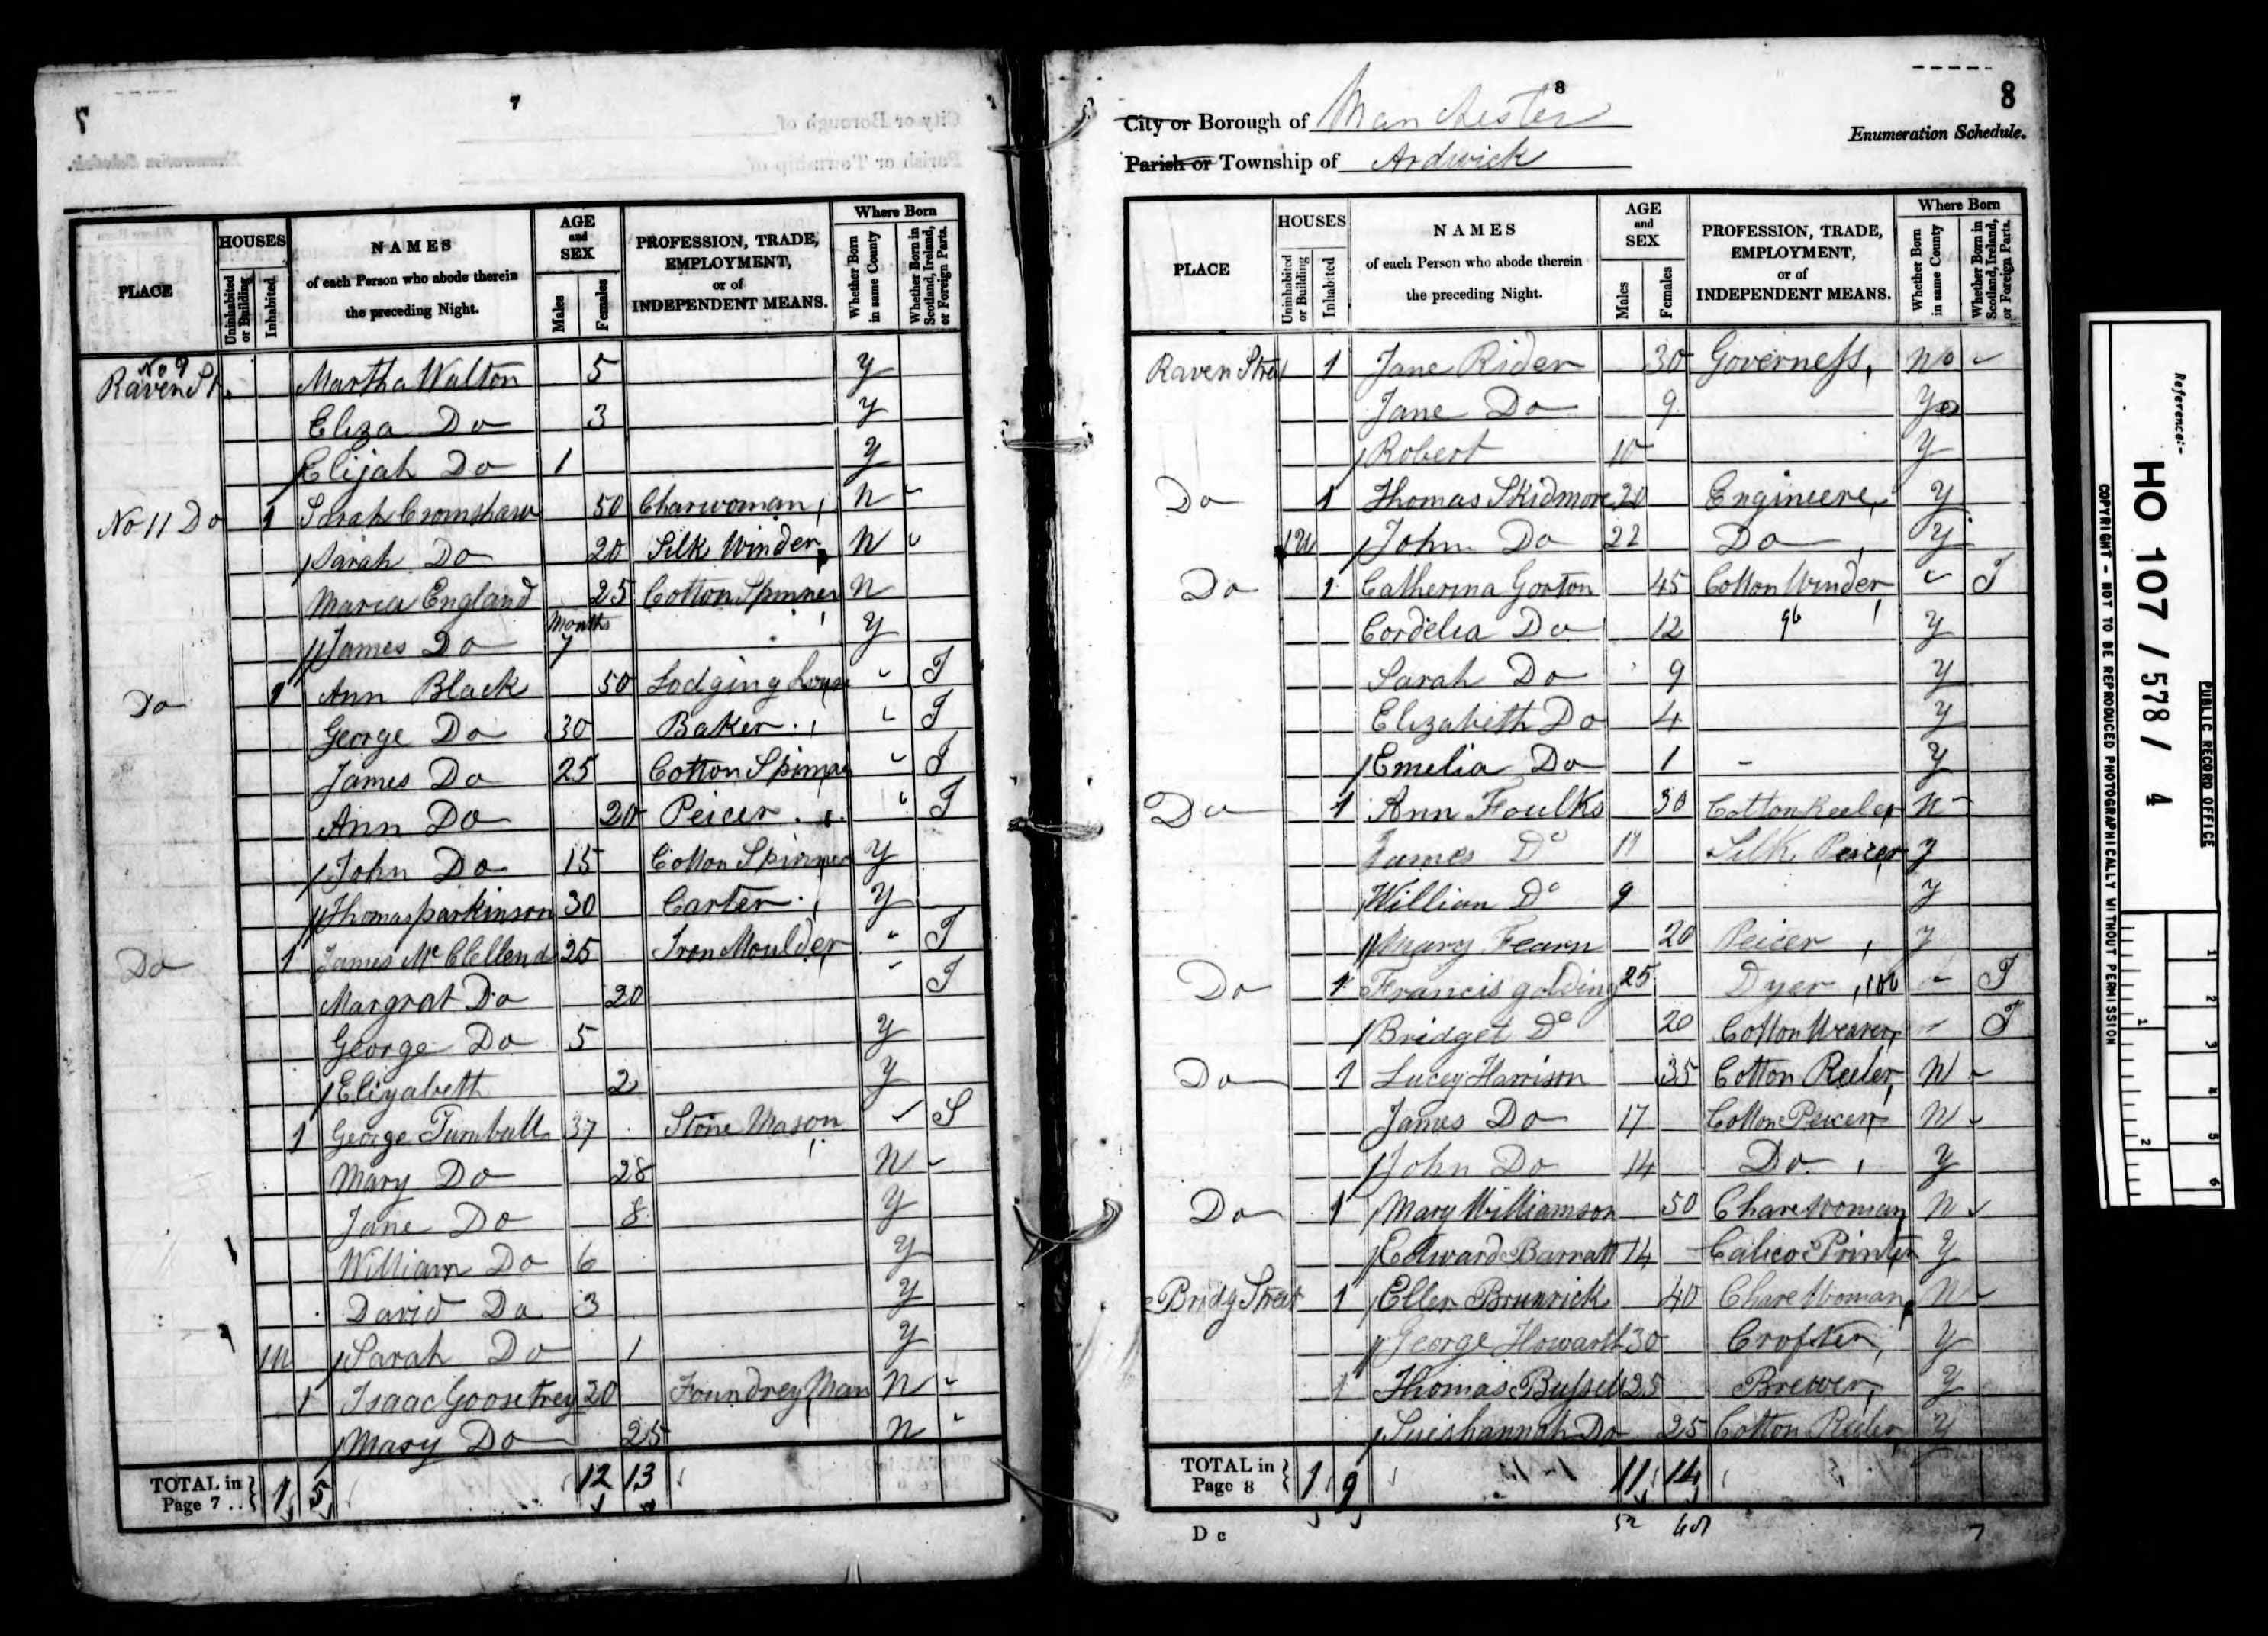 7
7
PLACE
HOUSES
Uninhabited or Building
Inhabited
NAMES
of each Person who abode therein
the preceding Night.
AGE
and
SEX
Males
Females
PROFESSION, TRADE,
EMPLOYMENT,
or of
INDEPENDENT MEANS.
Where Born
Whether Born in same County
Whether Born in Scotland, Ireland, or Foreign Parts.
No 9
Raven St. Martha Walton 5 y
Eliza Do 3 y
Elijah Do 1 y
No 11 Do 1 Sarah Cromshaw 50 Charwoman n
Sarah Do 20 Silk Winder N
Maria England 25 Cotton Spinner n
James Do Months 7 y
Do 1 Ann Black 50 Lodging house I
George Do 30 Baker I
James Do 25 Cotton Spinner I
Ann Do 20 Peicer I
John Do 15 Cotton Spinner y
Thomas parkinson 30 Carter y
Do 1 James McClellend 25 Iron Moulder I
Margrat Do 20 I
George Do 5 y
Elizabeth 2 y
1 George Turnbull 37 Stone Mason S
Mary Do 28 N
Jane Do 8 y
William Do 6 y
David Do 3 y
1U Sarah Do 1 y
1 Isaac Goosetrey 20 Foundrey Man N
Mary Do 25 n
TOTAL in
Page 7 .. } 1 5 12 13
8
8
City or Borough of Manchester
Enumeration Schedule.
Parish or Township of Ardwick
PLACE
HOUSES
Uninhabited or Building
Inhabited
NAMES
of each Person who abode therein
the preceding Night.
AGE
and
SEX
Males
Females
PROFESSION, TRADE,
EMPLOYMENT,
or of
INDEPENDENT MEANS.
Where Born
Whether Born in same County
Whether Born in Scotland, Ireland, or Foreign Parts.
Raven Street 1 Jane Rider 30 Governess, No
Jane Do 9 Yes
Robert 10 y
Do 1 Thomas Skidmore 20 Engineere y
1U John Do 22 Do y
Do 1 Catherina Gorton 45 Cotton Winder I
Cordelia Do 12 96 y
Sarah Do 9 y
Elizabeth Do 4 y
Emelia Do 1 - y
Do 1 Ann Foulks 30 Cotton Reeler N
James Do 11 Silk Peicer y
William Do 9 y
Mary Fearn 20 Peicer y
Do 1 Francis golding 25 Dyer 100 I
Bridget Do 20 Cotton Weaver I
Do 1 Lucey Harrison 35 Cotton Reeler N
James Do 17 Cotton Peicer N
John Do 14 Do y
Do 1 Mary Williamson 50 Chare Woman N
Edward Barratt 14 Calico Printer y
Bridg Street 1 Ellen Brunrick 40 Chare Woman N
George Howarth 30 Crofter y
1 Thomas Bussell 25 Brewer y
Suishannah Do 25 Cotton Reeler y
TOTAL in
Page 8 } 1 9 11 14
D c
7
Reference:-
HO 107 / 578 / 4
PUBLIC RECORD OFFICE
COPYRIGHT - NOT TO BE REPRODUCED PHOTOGRAPHICALLY WITHOUT PERMISSION
1
2
1
2
3
4
5
6